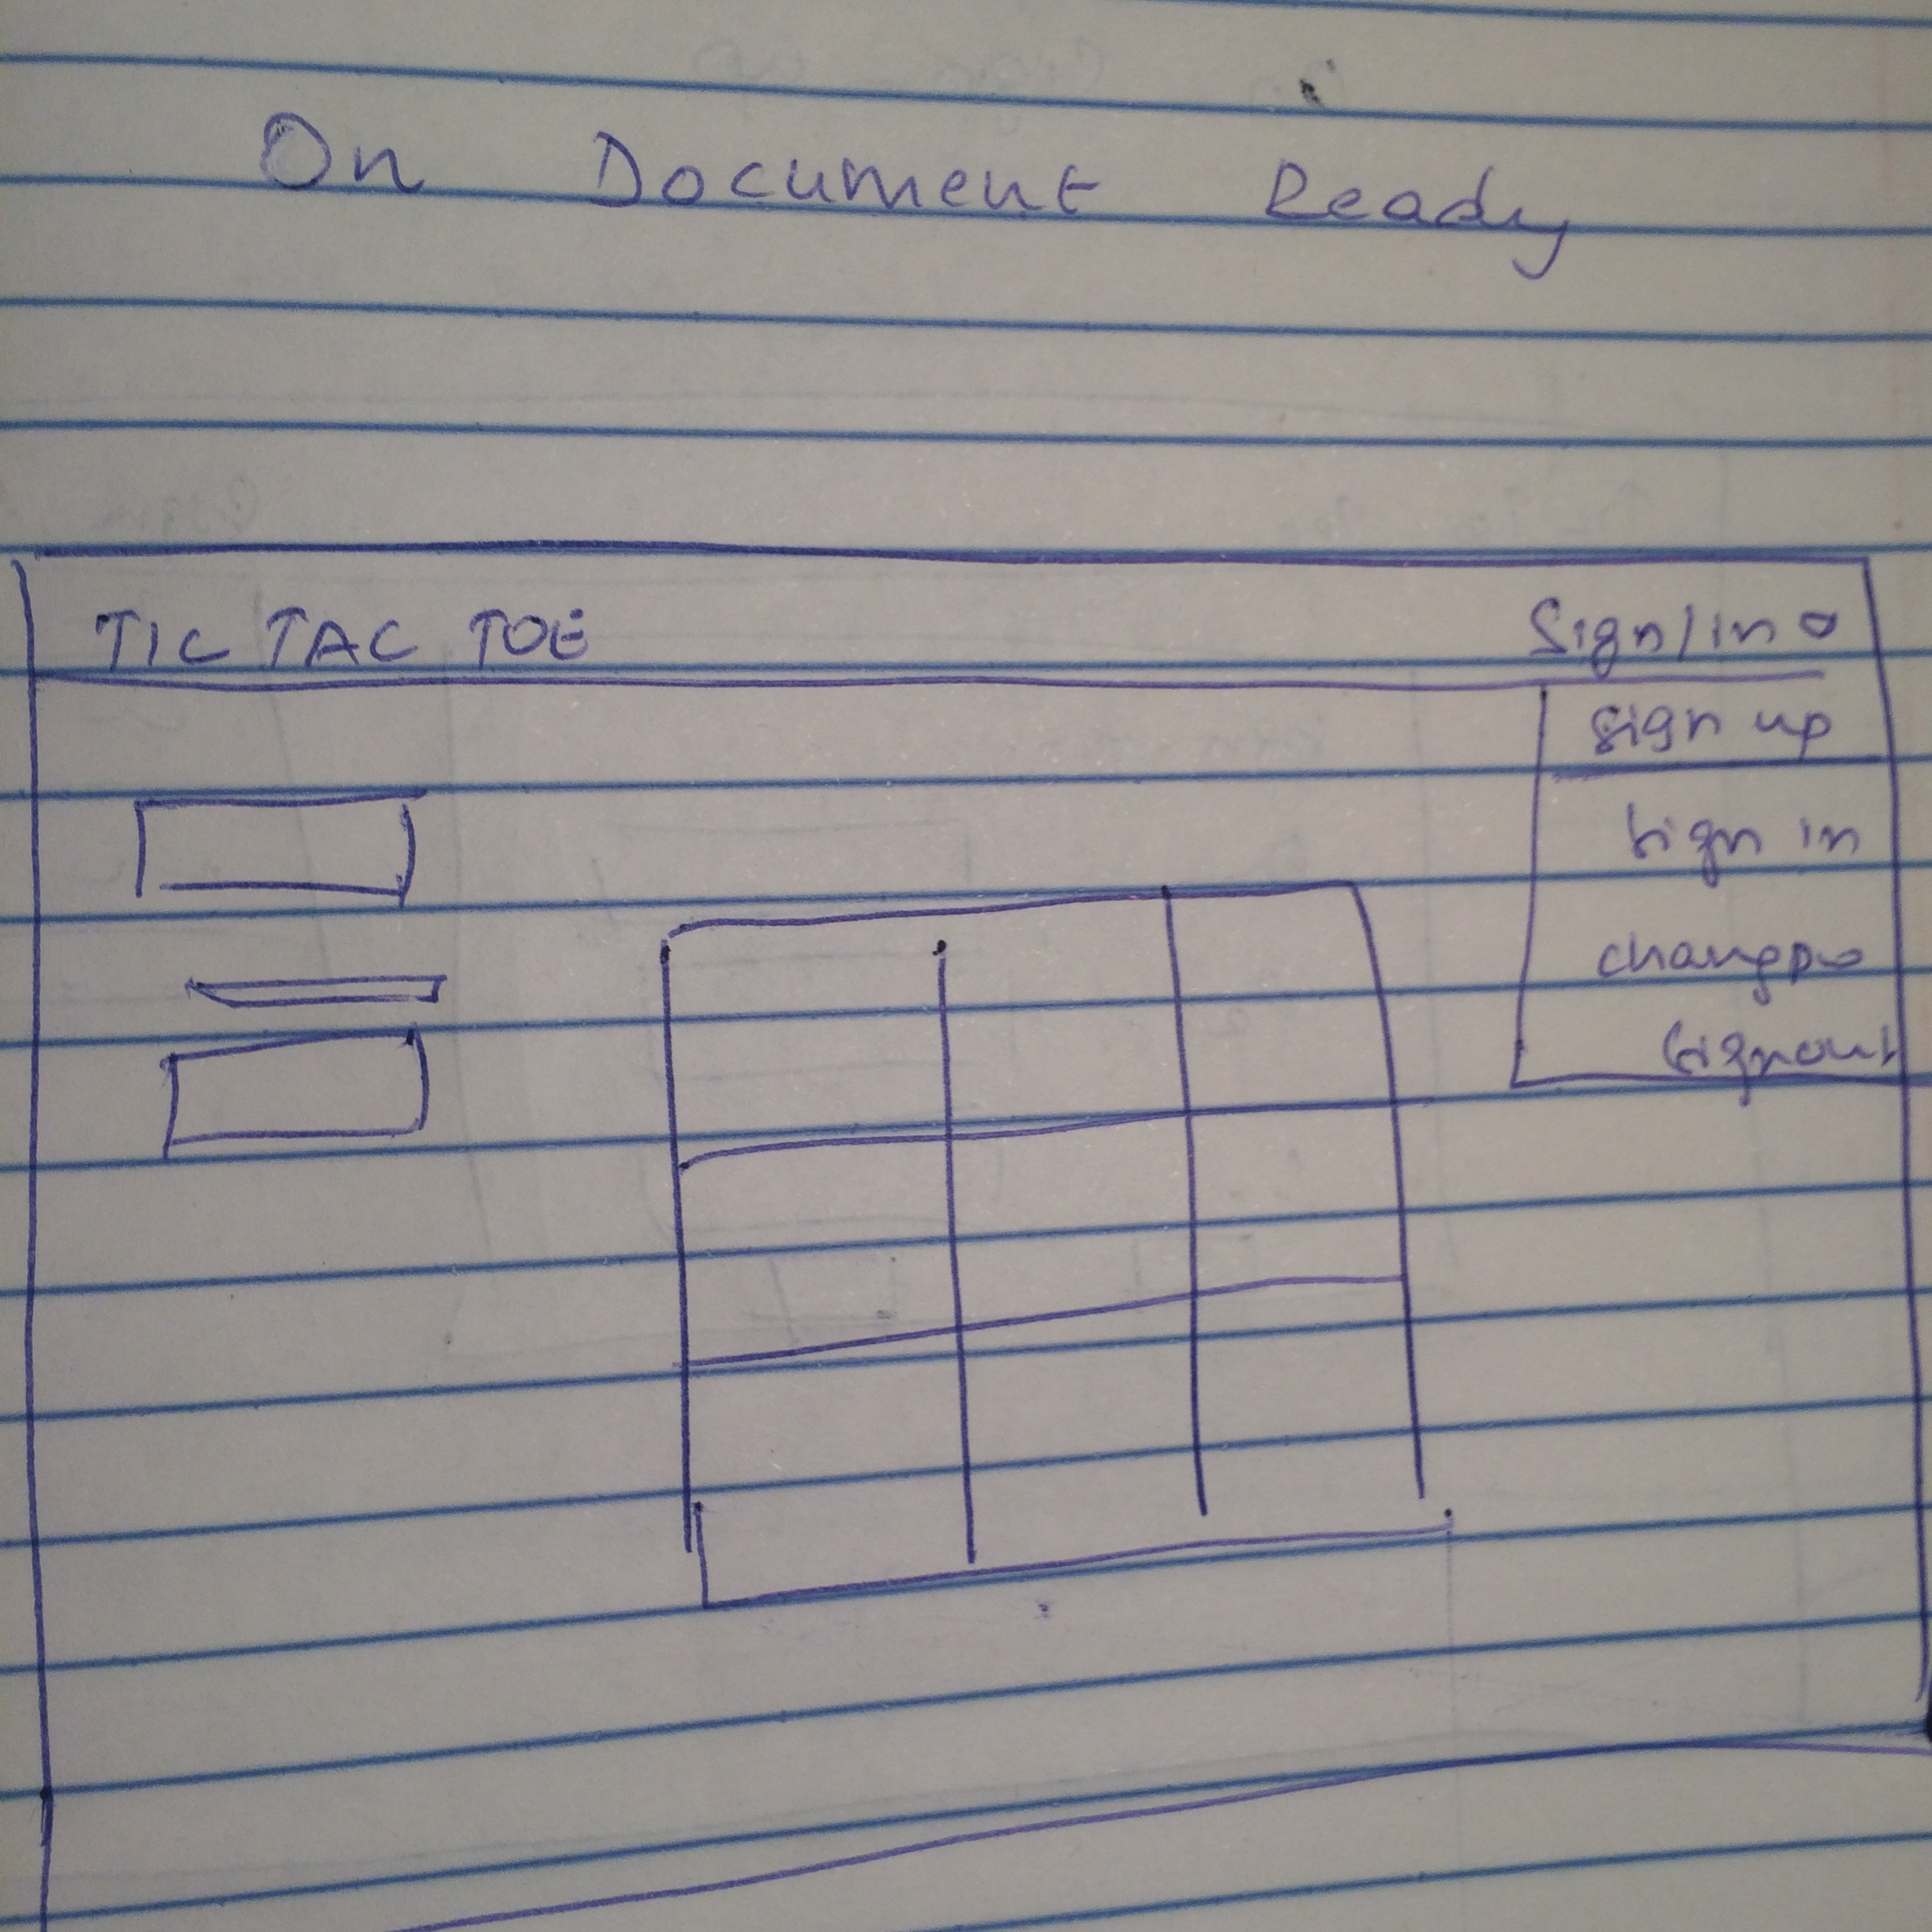 On Document Ready
TIC TAC TOE Sign/in
sign up
sign in
changpw
signout